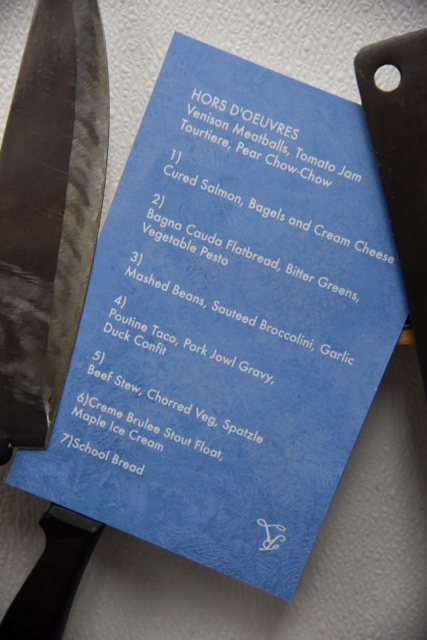 HORS D'OEUVRES
Venison Meatballs, Tomato Jam
Tourtiere, Pear Chow-Chow
1)
Cured Salmon, Bagels and Cream Cheese
2)
Bagna Cauda Flatbread, Bitter Greens,
Vegetable Pesto
3)
Mashed Beans, Sauteed Broccolini, Garlic
4)
Poutine Taco, Pork Jowl Gravy,
Duck Confit
5)
Beef Stew, Charred Veg, Spatzle
6)Creme Brulee Stout Float,
Maple Ice Cream
7)School Bread